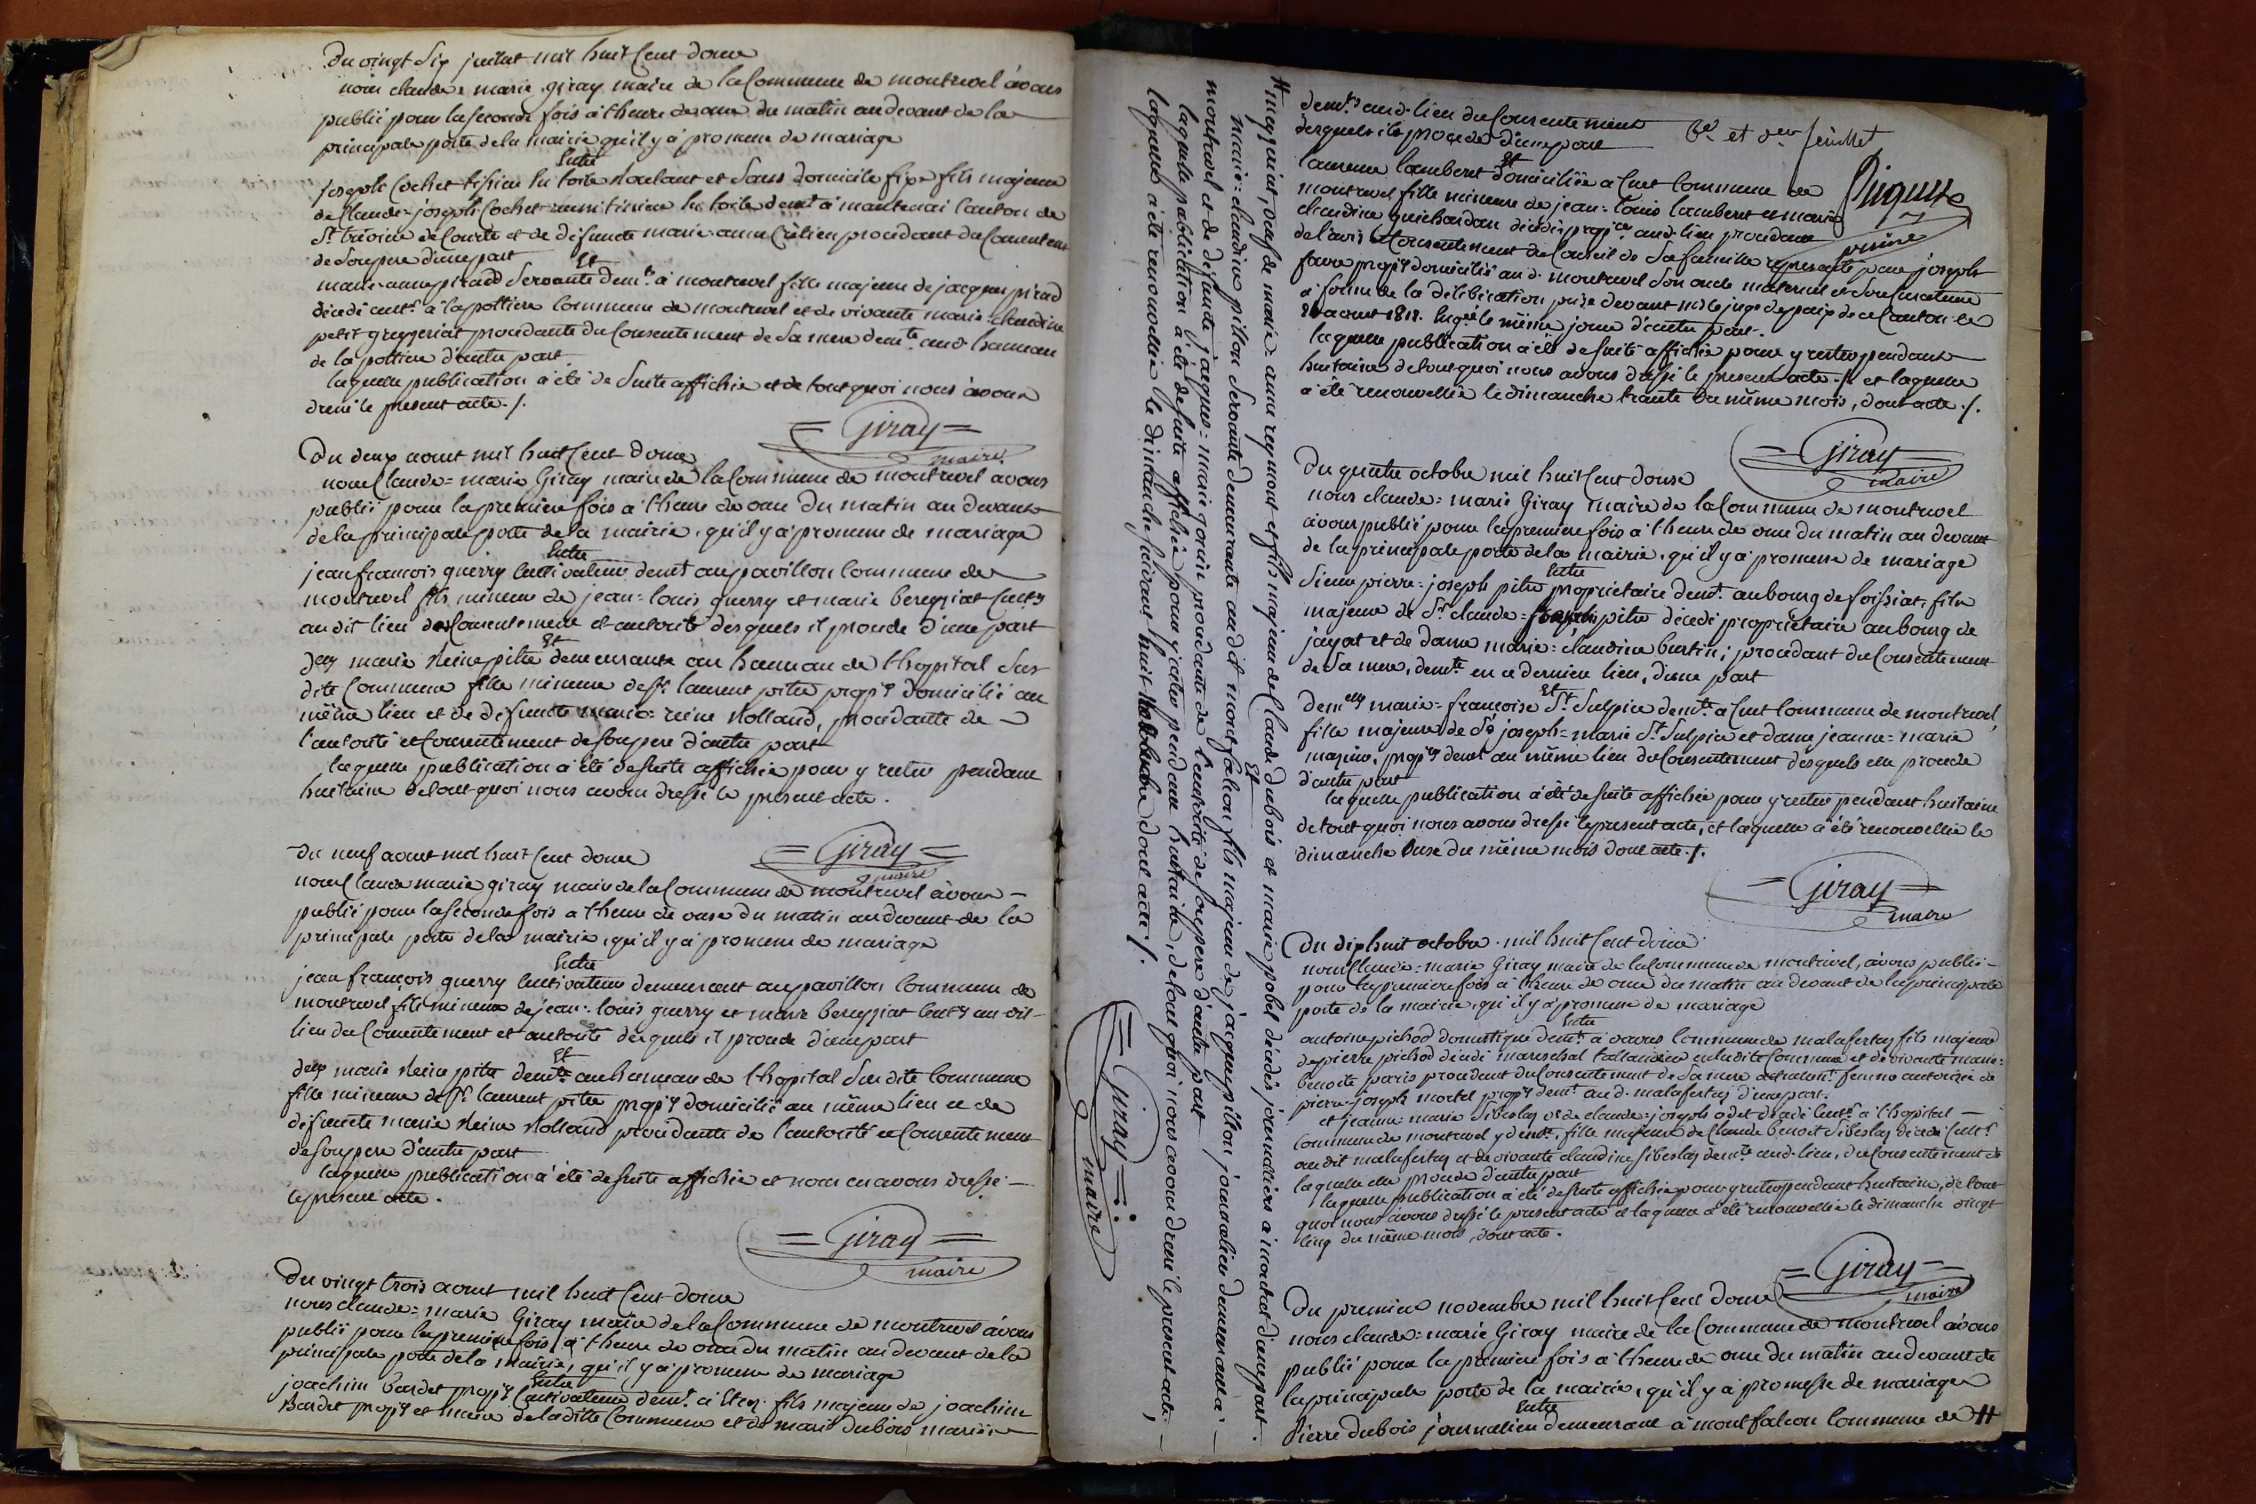 Du vingt six juillet mil huit cent douze
nous claude marie giray maire de la Commune de montrevel avons
publié pour la seconde fois a l'heure de onze du matin au devant de la
principale porte de la mairie qu'il y a promesse de mariage
Entre
joseph Cochet tissier en toile roulant et sans domicile fixe fils majeur
de Claude joseph Cochet aussi tissier en toile demt a mantenai Canton de
St trivier de Courte et de défuncte marie anne procédant du Consentemt
de son pere d'une part
Et
marie anne pirad servante demte à montrevel fille majeure de jacques pirad
décédé cultr à la pottiere Commune de montrevel et de vivante marie claudine
petit greyeriat procédante du Consentement de sa mere demte aud. hameau
de la pottiere d'autre part
laquelle publication a été de suite affichée et de tout quoi nous avons
dressé le présent acte ./.
= Giray =
maire
Du deux aout mil huit Cent douze
nous Claude = marie Giray maire de la Commune de montrevel avons
publié pour la premiere fois a l'heure de onze du matin au devant
de la principale porte de la mairie, qu'il y a promesse de mariage
Entre
jean françois querry Cultivateur demt au pavillon Commune de
montrevel fils mineur de jean = louis querry et marie bereyziat Cultrs
au dit lieu du Consentement et autorité desquels il procede d'une part
Et
Delle marie Reine pitre demeurante au hameau de l'hopital sus
dite Commune fille mineure de Sr laurent pitre propre domicilié au
même lieu et de défuncte marie = reine Rolland, procédante de
l'autorité et Consentement de son pere d'autre part
laquelle publication a été de suite affichée pour y rester pendant
huitaine de tout quoi nous avons dressé le présent acte.
= Giray =
maire
Du neuf aout mil huit Cent douze
nous Claude marie giray maire de la Commune de montrevel avons
publié pour la seconde fois a l'heure de onze du matin au devant de la
principale porte de la mairie, qu'il y a promesse de mariage
Entre
jean françois querry Cultivateur demeurant au pavillon Commune de
montrevel fils mineur de jean = louis querry et marie bereyziat Cultrs au dit
lieu du Consentement et autorité desquels il procede d'une part
Et
Delle marie Reine pitre demte au hameau de l'hopital sus dite Commune
fille mineure de Sr laurent pitre propre domicilié au même lieu et de
défuncte marie Reine Rolland procédante de l'autorité et Consentement
de son pere d'autre part
laquelle publication a été de suite affichée et nous en avons dressé
le présent acte.
= Giray =
maire
Du vingt trois aout mil huit Cent douze
nous claude = marie Giray maire de la Commune de montrevel avons
publié pour la premiere fois, a l'heure de onze du matin au devant de la
principale porte de la mairie, qu'il y a promesse de mariage
Entre
joachim bardet propre Cultivateur demt a fils majeur de joachim
Bardet propre et maire de la ditte Commune et de marie dubois mariés
demts aud. lieu du Consentement
desquels il procede d'une part
6e et der feuillet
Et
laurence lambert domiciliée a Cuet Commune de
montrevel fille mineure de jean = louis lambert et marie
claudine guichardan décédés propres aud. lieu procédante
de l'avis et Consentement du Conseil de sa famille représenté par joseph
favre propre domicilié aud. montrevel son oncle maternel et son curateur
a forme de la délibération prise devant mr le juge de paix de ce Canton le
aout 1811. le même jour d'autre part.
laquelle publication a été de suite affichée pour y rester pendant
huitaine de tout quoi nous avons dressé le présent acte ./. et laquelle
a été renouvellée le dimanche trente du même mois, dont acte ./.
= Giray =
maire
Du quatre octobre mil huit Cent douze
nous claude = marie Giray maire de la Commune de montrevel
avons publié pour la premiere fois a l'heure de onze du matin au devant
de la principale porte de la mairie, qu'il y a promesse de mariage
Entre
Sieur pierre = joseph pitre propriétaire demt. au bourg de foissiat, fils
majeur de Sr claude = pitre décédé propriétaire au bourg de
jayat et de dame marie = claudine burtin; procédant du Consentement
de sa mere, demte en ce dernier lieu, d'une part
Et
Demelle marie = françoise St Sulpice demte a Cuet Commune de montrevel
fille majeure de Sr joseph = marie St Sulpice et dame jeanne = marie
propres demt au même lieu du Consentement desquels elle procede
d'autre part
laquelle publication a été de suite affichée pour y rester pendant huitaine
de tout quoi nous avons dressé le présent acte, et laquelle a été renouvellée le
dimanche onze du même mois dont acte ./.
= Giray =
maire
Du dix huit octobre mil huit Cent douze
nous Claude = marie Giray maire de la Commune de montrevel, avons publié
pour la premiere fois a l'heure de onze du matin au devant de la principale
porte de la mairie, qu'il y a promesse de mariage
Entre
antoine pichod domestique demt. a Commune de malafertay fils majeur
de pierre pichod décédé mareschal en la dite Commune et de vivante marie =
benoite paris procédant du Consentement de sa mere femme autorisée de
pierre = joseph mortel propre demt aud. malafertay d'une part.
et jeanne = marie Sibeslay ve de claude = joseph odet décédé cultr a l'hopital
Commune de montrevel y demte, fille majeure de Claude benoit Sibeslay décédé Cultr
au dit malafertay et de vivante claudine Sibeslay demte aud. lieu, du Consentement de
laquelle elle procede d'autre part
laquelle publication a été de suite affichée pour y rester pendant huitaine, de tout
quoi nous avons dressé le présent acte et laquelle a été renouvellée le dimanche vingt
cinq du même mois, dont acte.
= Giray =
maire
Du premier novembre mil huit Cent douze
nous claude = marie Giray maire de la Commune de montrevel avons
publié pour la premiere fois a l'heure de onze du matin au devant de
la principale porte de la mairie, qu'il y a promesse de mariage
Entre
Pierre dubois journalier demeurant à montfalcon Commune de #
# veuf de marie = anne reymont et fils majeur de Claude dubois et marie pobel décédés journalliers a d'une part.
Et
marie = claudine pillon servante demeurante au dit montfalcon fils majeure de jacques pillon journalier demeurant a
montrevel et de défunte jacques = marie gouin procédante de l'autorité de son pere d'autre part
laquelle publication a été de suite affichée pour y rester pendant huitaine, de tout quoi nous avons dressé le présent acte,
laquelle a été renouvellée le dimanche suivant huit dont acte ./.
= Giray =
maire